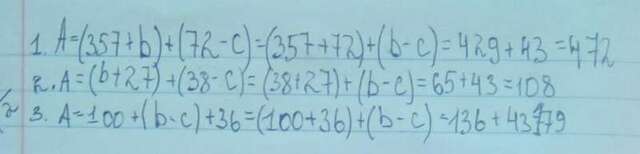 1. A=(357+b)+(72-c)=(357+72)+(b-c)=429+43=472
2. A=(b+27)+(38-c)=(38+27)+(b-c)=65+43=108
3. A=100+(b-c)+36=(100+36)+(b-c)=136+43=179